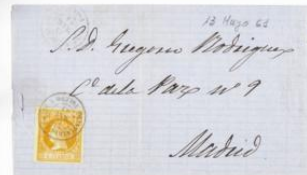 13 Mayo 61
S. D. Gregorio Rodriguez
C.ª de la Paz nº 9
Madrid